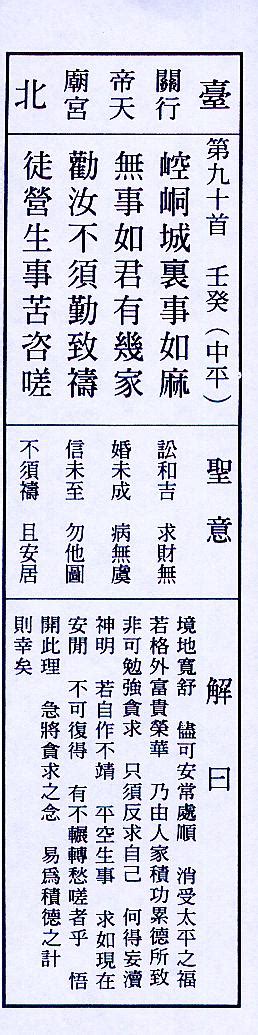 臺北
關行天宮
帝廟
第九十首 壬癸(中平)
崆峒城裏事如麻
無事如君有幾家
勸汝不須勤致禱
徒營生事苦咨嗟
聖意
訟和吉 求財無
婚未成 病無虞
信未至 勿他圖
不須禱 且安居
解曰
境地寬舒 儘可安常處順 消受太平之福
若格外富貴榮華 乃由人家積功累德所致
非可勉強貪求 只須反求自己 何得妄瀆
神明 若自作不靖 平空生事 求如現在
安閒 不可復得 有不輾轉愁嗟者乎 悟
開此理 急將貪求之念 易爲積德之計
則幸矣